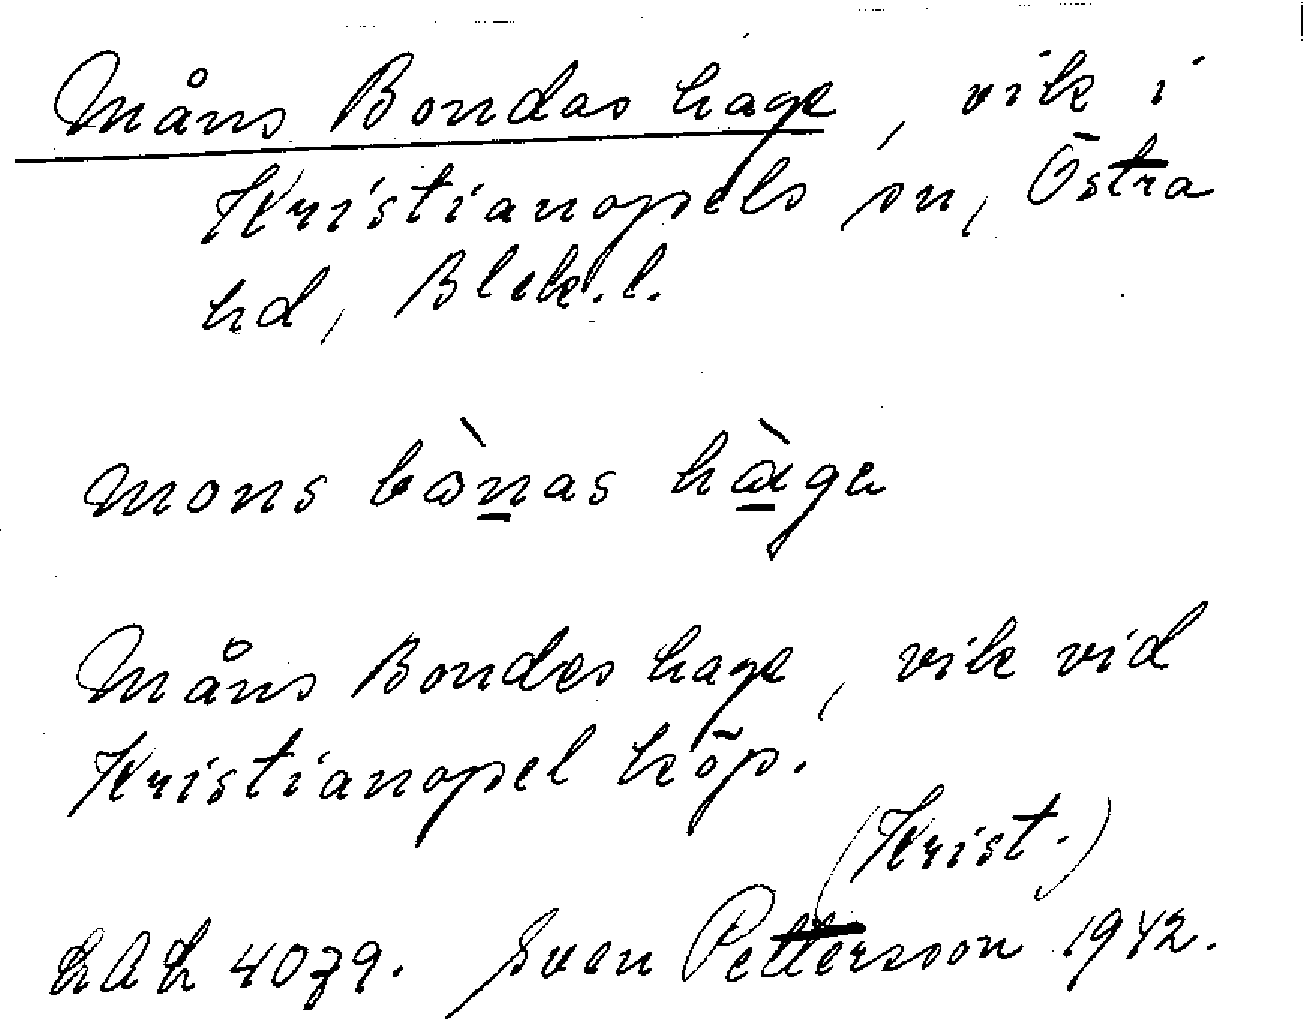 Måns Bondas hage, vik i
Kristianopels sn, Östra
hd, Blek.l.
mons bɷ̀n̲as hɑ̲̀ga
Måns Bondes hage, vik vid
Kristianopel köp.
(Krist.)
LAL 4079. Sven Pettersson 1942.